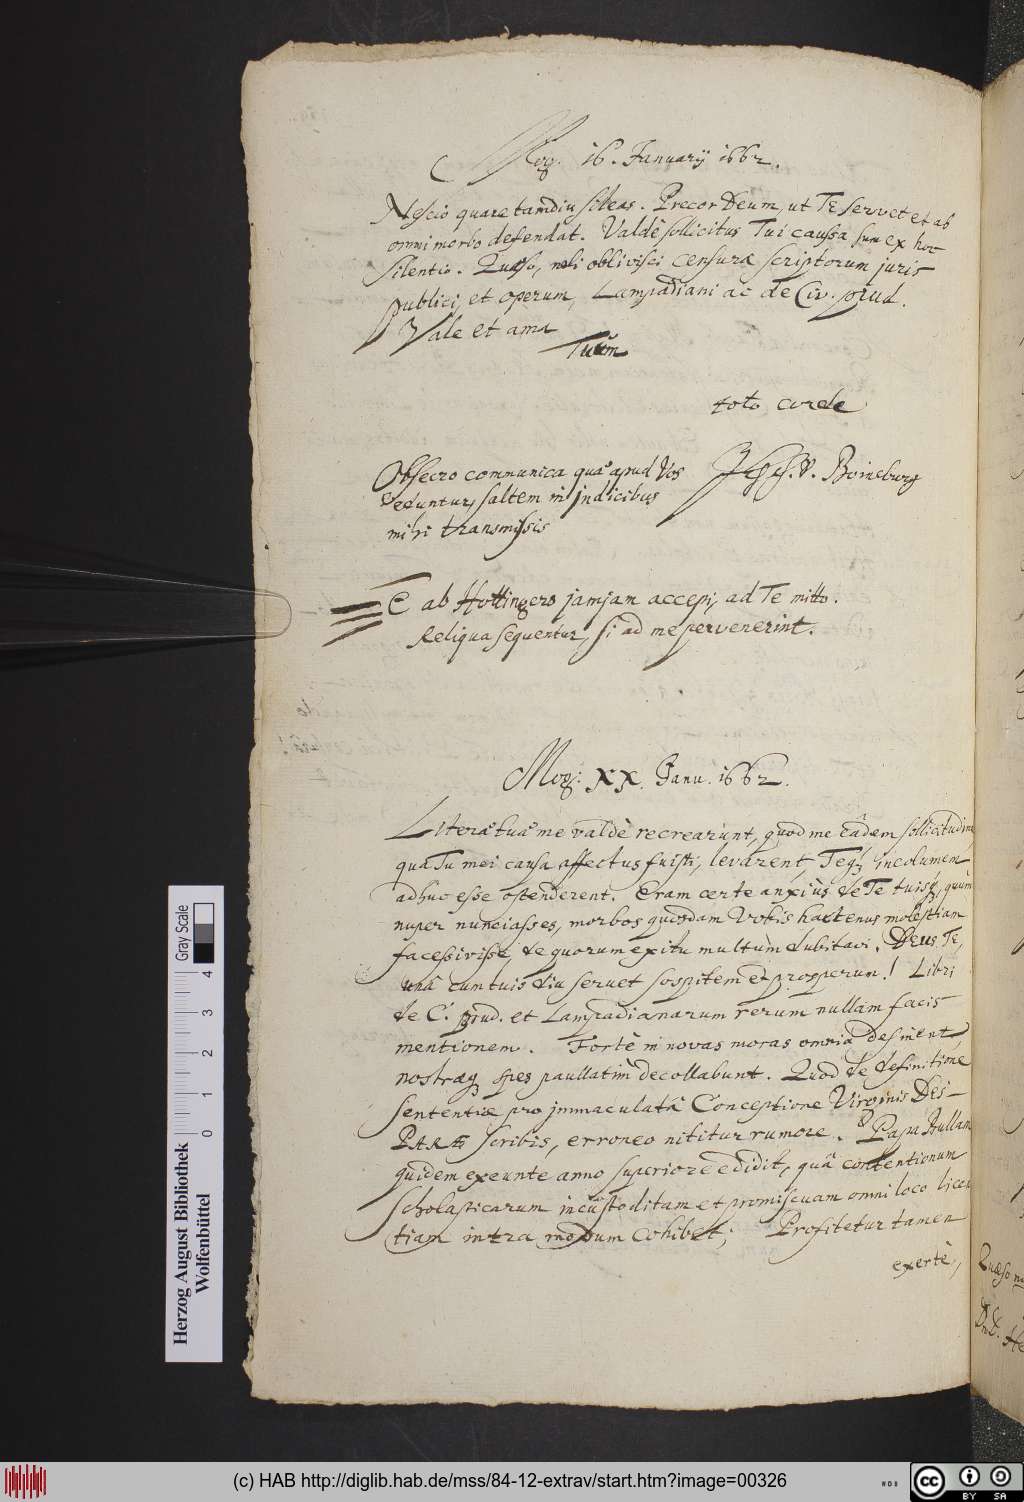 Mog. 16. Januarij 1662.
Nescio quare tamdiu sileas. Precor Deum, ut Te servet et ab
omni morbo defendat. Valdè sollicitus Tui caussa sum ex hoc
silentio. Quæso, noli oblivisci censuræ scriptorum juris
publici, et operum, Lampadiani ac de Civ. prud.
Vale et ama
Tuum
toto corde
Obsecro communica quæ apud Vos
eduntur, saltem in indicibus
mihi transmissis
J. C. V. Boineburg
ab Hottingero jamjam accepi, ad Te mitto.
Reliqua sequentur, si ad me pervenerint.
Mog: XX. Janu. 1662.
Literæ tuæ me valdè recrearunt, quod me eâdem sollicitudine,
quâ Tu mei causa affectus fuisti, levarent, Teq; incolumem
adhuc esse ostenderent. Eram certe anxiùs de Te tuisq;, quùm
nuper nunciasses, morbos quosdam Vobis hactenus molestiam
facessivisse, de quorum exitu multùm dubitavi. Deus Te,
unâ cum tuis diu servet sospitem et prosperum! Libri
de C. prud. et Lampadianarum rerum nullam facis
mentionem. Fortè in novas moras omnia desinent,
nostræq; spes paullatim decollabunt. Quod de definitione
sententiæ pro immaculatâ Conceptione Virginis Dei-
PARÆ scribis, erroneo nititur rumore. Papa Bullam
quidem exeunte anno superiore edidit, quâ contentionum
scholasticarum incustoditam et promiscuam omni loco licen
tiam intra modum cohibet; Profitetur tamen
exertè,
Gray Scale
0 1 2 3 4
Herzog August Bibliothek
Wolfenbüttel
(c) HAB http://diglib.hab.de/mss/84-12-extrav/start.htm?image=00326
cc BY SA